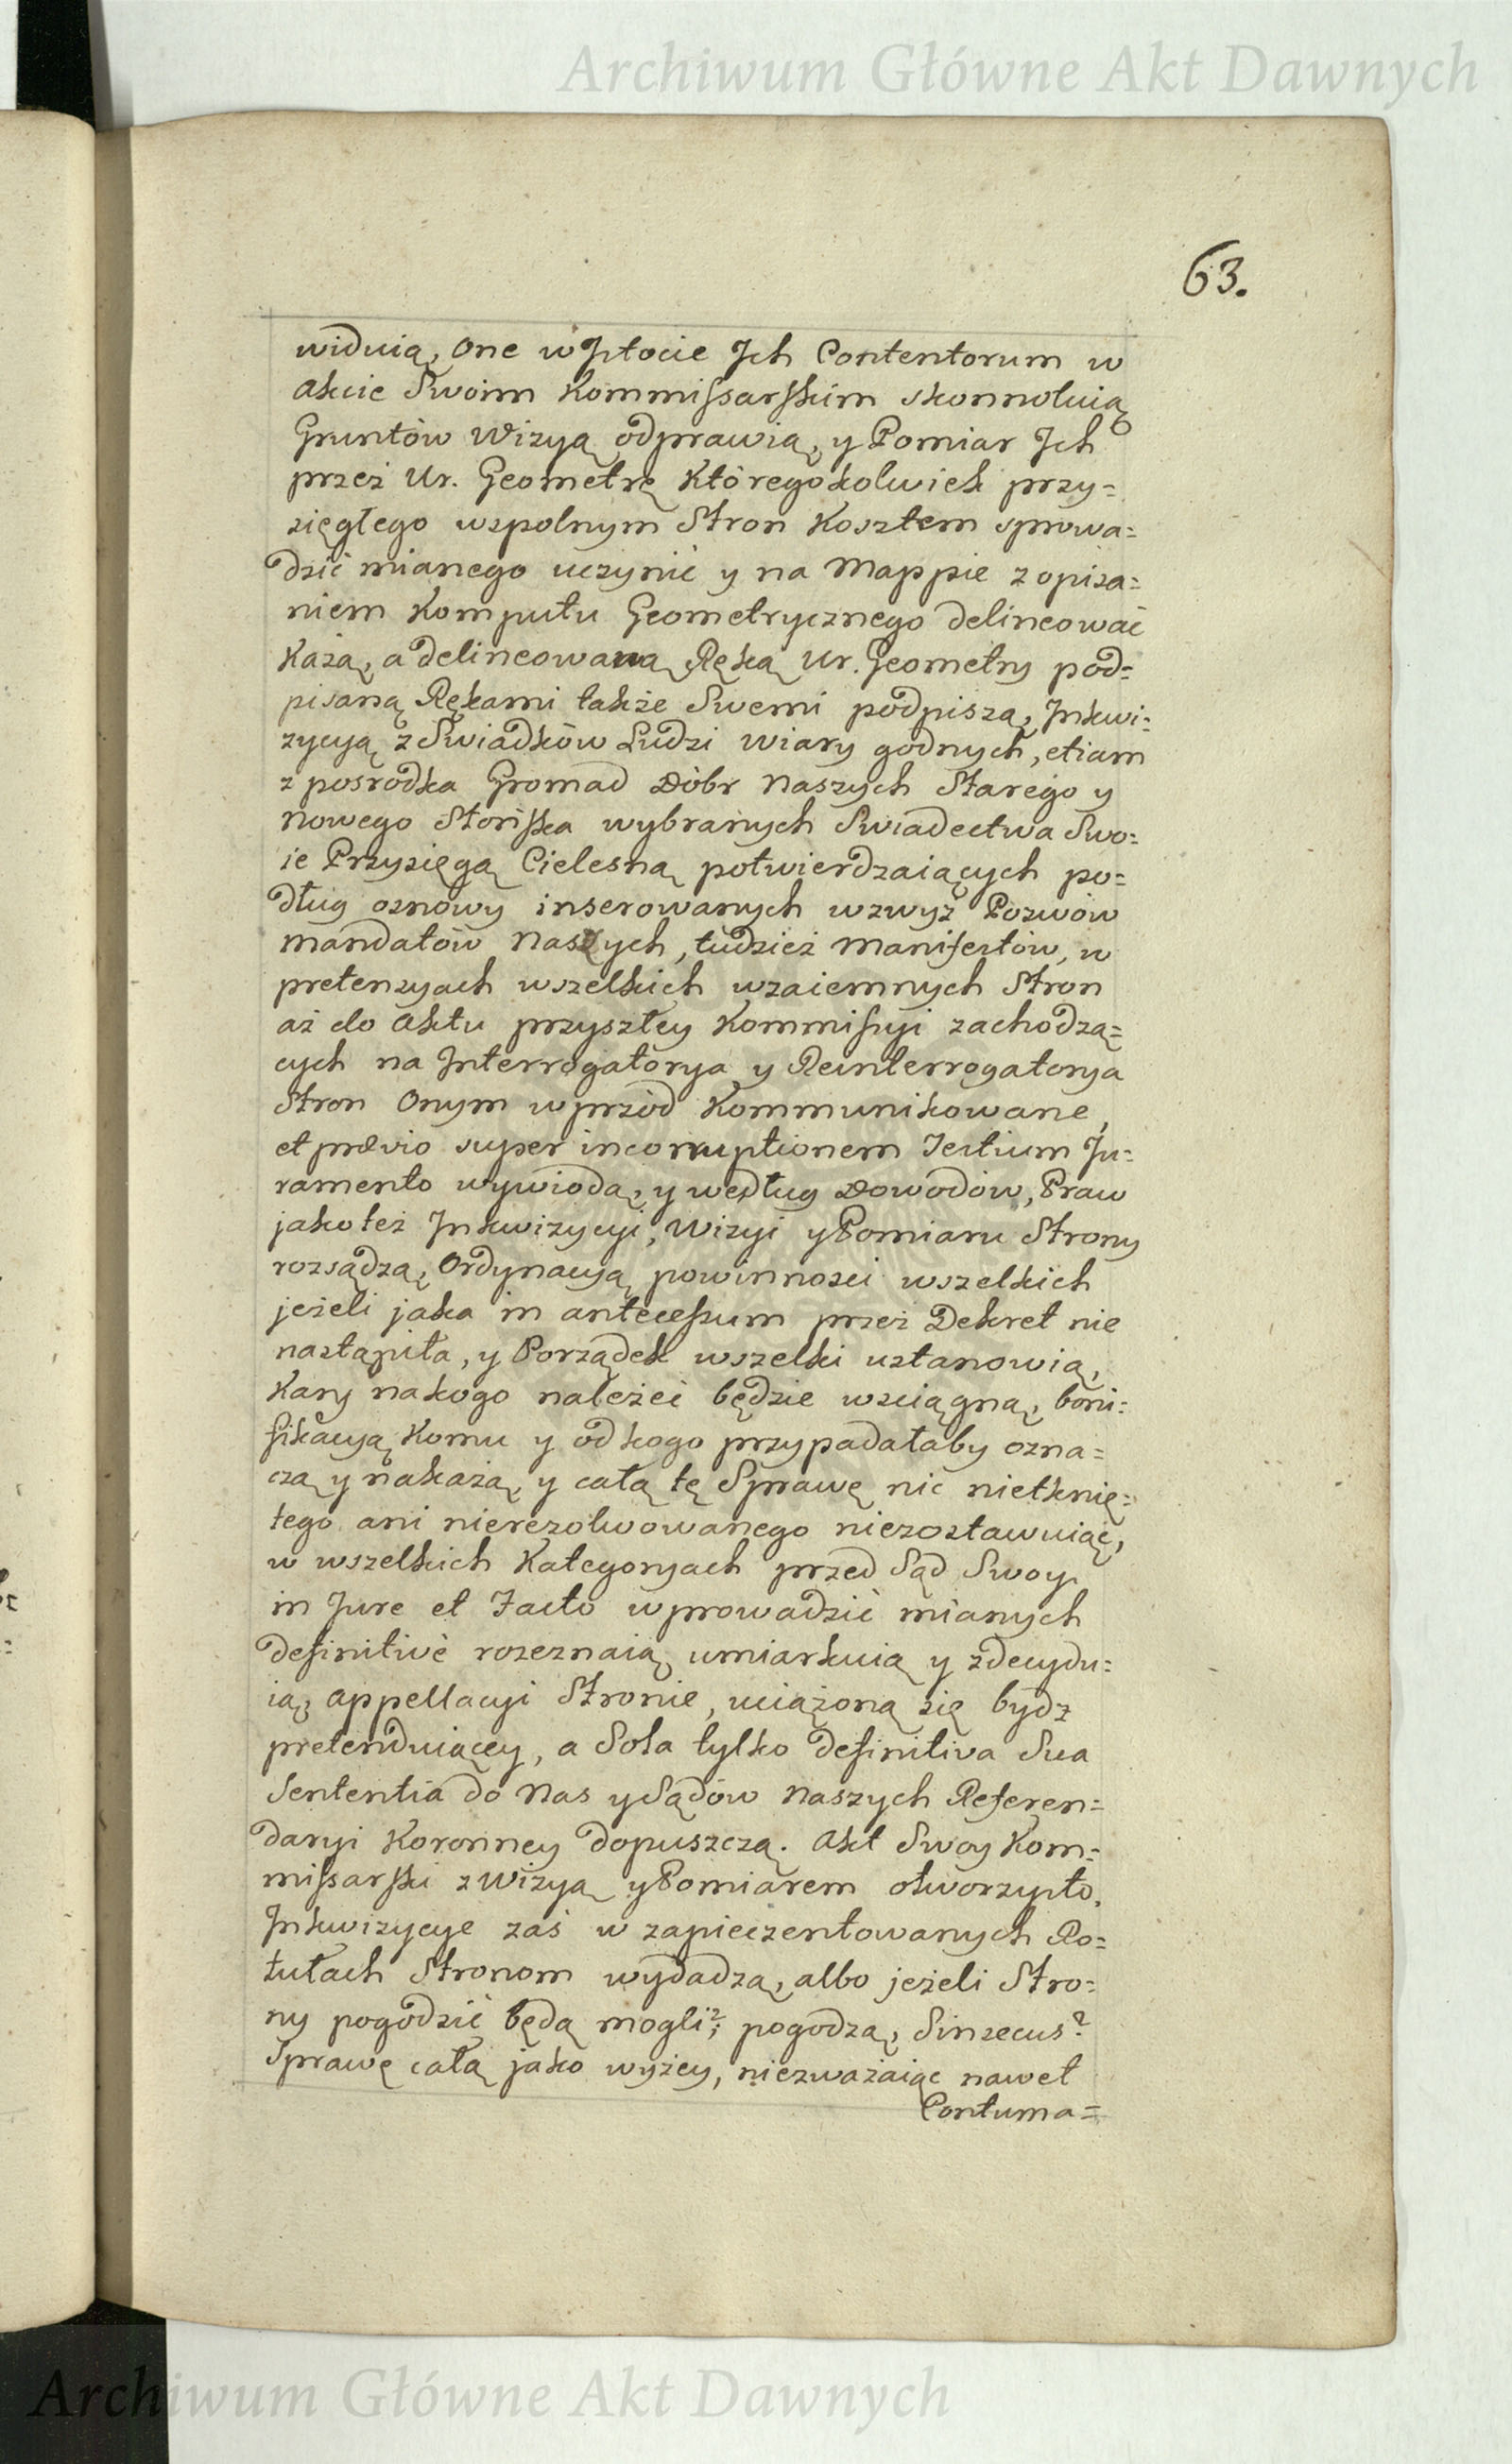 Archiwum Główne Akt Dawnych
63.
widuią, One w Istocie Ich Contentorum w
Akcie Swoim Kommissarskim skonnotuią
Gruntów Wizyą odprawią, y Pomiar Ich
przez Ur. Geometrę któregokolwiek przy=
sięgłego wspolnym Stron Kosztem sprowa=
dzić mianego uczynić y na Mappie z opisa=
niem Komputu Geometrycznego delineować
każą, a delineowaną Ręką Ur. Geometry pod=
pisaną Rękami także Swemi podpiszą, Inkwi=
zycyą z Swiadków Ludzi wiary godnych, etiam
z posrodka Gromad Dóbr Naszych Starego y
Nowego Storiska wybranych Swiadectwa Swo=
ie Przysięgą Cielesną potwierdzaiących po=
dług osnowy inserowanych wzwyż Pozwów
Mandatów Naszych, tudzież Manifestów, w
pretensyach wszelkich wzaiemnych Stron
aż do Aktu przyszłey Kommissyi zachodzą=
cych na Interrogatorya y Reinterrogatorya
Stron Onym wprzód Kommunikowane,
et prævio super incorruptionem Testium Ju=
ramento wywiodą, y według Dowodów, Praw
jako też Inkwizycyi, Wizyi y Pomiaru Strony
rozsądzą, Ordynacyą powinnosci wszelkich
jeżeli jaka in antecessum przez Dekret nie
nastąpiła, y Porządek wszelki ustanowią,
Kary na kogo należeć będzie wsciągną, boni=
fikacyą Komu y od kogo przypadałaby ozna=
czą y nakażą, y całą tę Sprawę nic nietknię=
tego ani nierezolwowanego niezostawuiąc,
w wszelkich Kategoryach przed Sąd Swoy
in Jure et Facto wprowadzić mianych
definitivè rozeznaią, umiarkuią y zdecydu=
ią, Appellacyi Stronie, uciążoną się bydz
pretenduiącey, a Sola tylko definitiva Sua
Sententia do Nas y Sądów Naszych Referen=
daryi Koronney dopuszczą. Akt Swoy Kom=
missarski z Wizyą y Pomiarem otworzysto,
Inkwizycye zaś w zapieczentowanych Ro=
tułach Stronom wydadzą, albo jeżeli Stro=
ny pogodzić będą mogli?; pogodzą, Sinsecus?
Sprawę całą jako wyżey, niezważaiąc nawet
Contuma=
Archiwum Główne Akt Dawnych